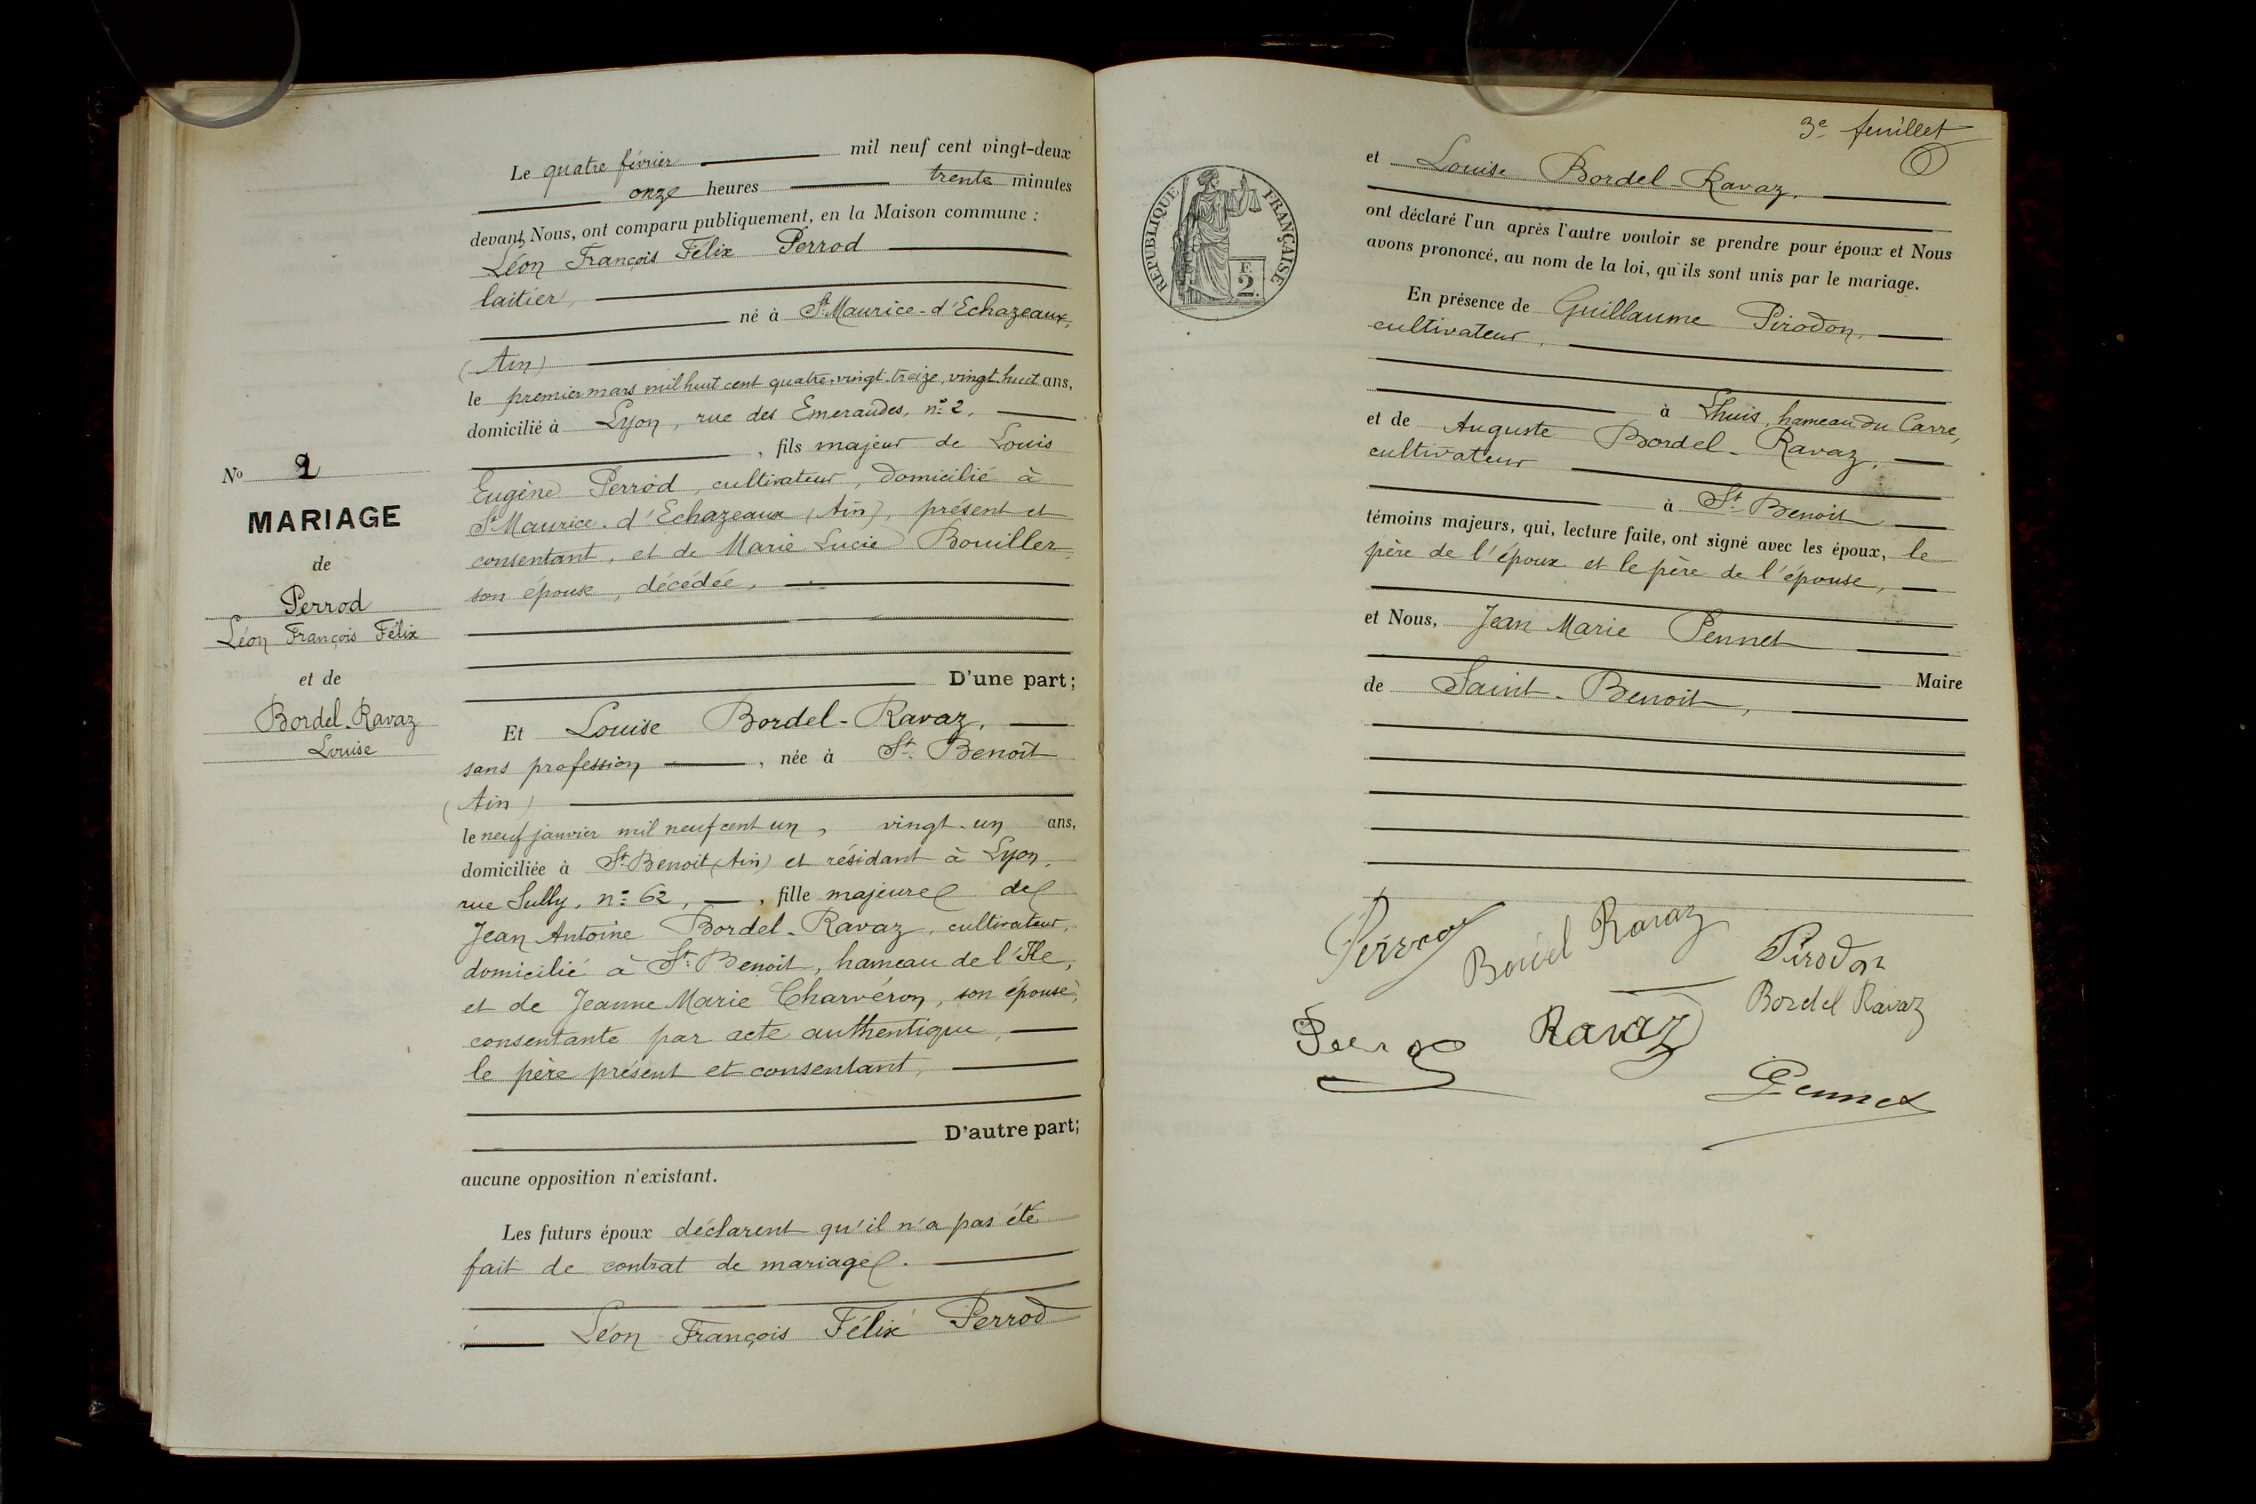 Le quatre février mil neuf cent vingt-deux
onze heures trente minutes
devant Nous, ont comparu publiquement, en la Maison commune :
Léon François Félix Perrod
laitier,
né à St Maurice-d'Echazeaux,
(Ain)
le premier mars mil huit cent quatre-vingt-treize, vingt-huit ans,
domicilié à Lyon, rue des Emeraudes, no 2,
, fils majeur de Louis
Eugène Perrod, cultivateur, domicilié à
St Maurice-d'Echazeaux (Ain), présent et
consentant, et de Marie Lucie Bouiller,
son épouse, décédée,
D'une part;
Et Louise Bordel-Ravaz,
sans profession , née à St Benoit
(Ain)
le neuf janvier mil neuf cent un, vingt-un ans,
domiciliée à St Benoit (Ain) et résidant à Lyon,
rue Sully, no 62, , fille majeure de
Jean Antoine Bordel-Ravaz, cultivateur,
domicilié à St Benoit, hameau de l'Ile,
et de Jeanne Marie Charvéron, son épouse,
consentante par acte authentique,
le père présent et consentant,
D'autre part;
aucune opposition n'existant.
Les futurs époux déclarent qu'il n'a pas été
fait de contrat de mariage.
Léon François Félix Perrod
No 2
MARIAGE
de
Perrod
Léon François Félix
et de
Bordel-Ravaz
Louise
3e feuillet
RÉPUBLIQUE FRANÇAISE
F.
2.
et Louise Bordel-Ravaz,
ont déclaré l'un après l'autre vouloir se prendre pour époux et Nous
avons prononcé, au nom de la loi, qu'ils sont unis par le mariage.
En présence de Guillaume Pirodon,
cultivateur,
à Lhuis, hameau du Carre,
et de Auguste Bordel-Ravaz,
cultivateur
à St Benoit
témoins majeurs, qui, lecture faite, ont signé avec les époux, le
père de l'époux et le père de l'épouse,
et Nous, Jean Marie Pennet
Maire
de Saint-Benoit,
Bordel Ravaz
Pirodon
Bordel Ravaz
Ravaz
Pennet